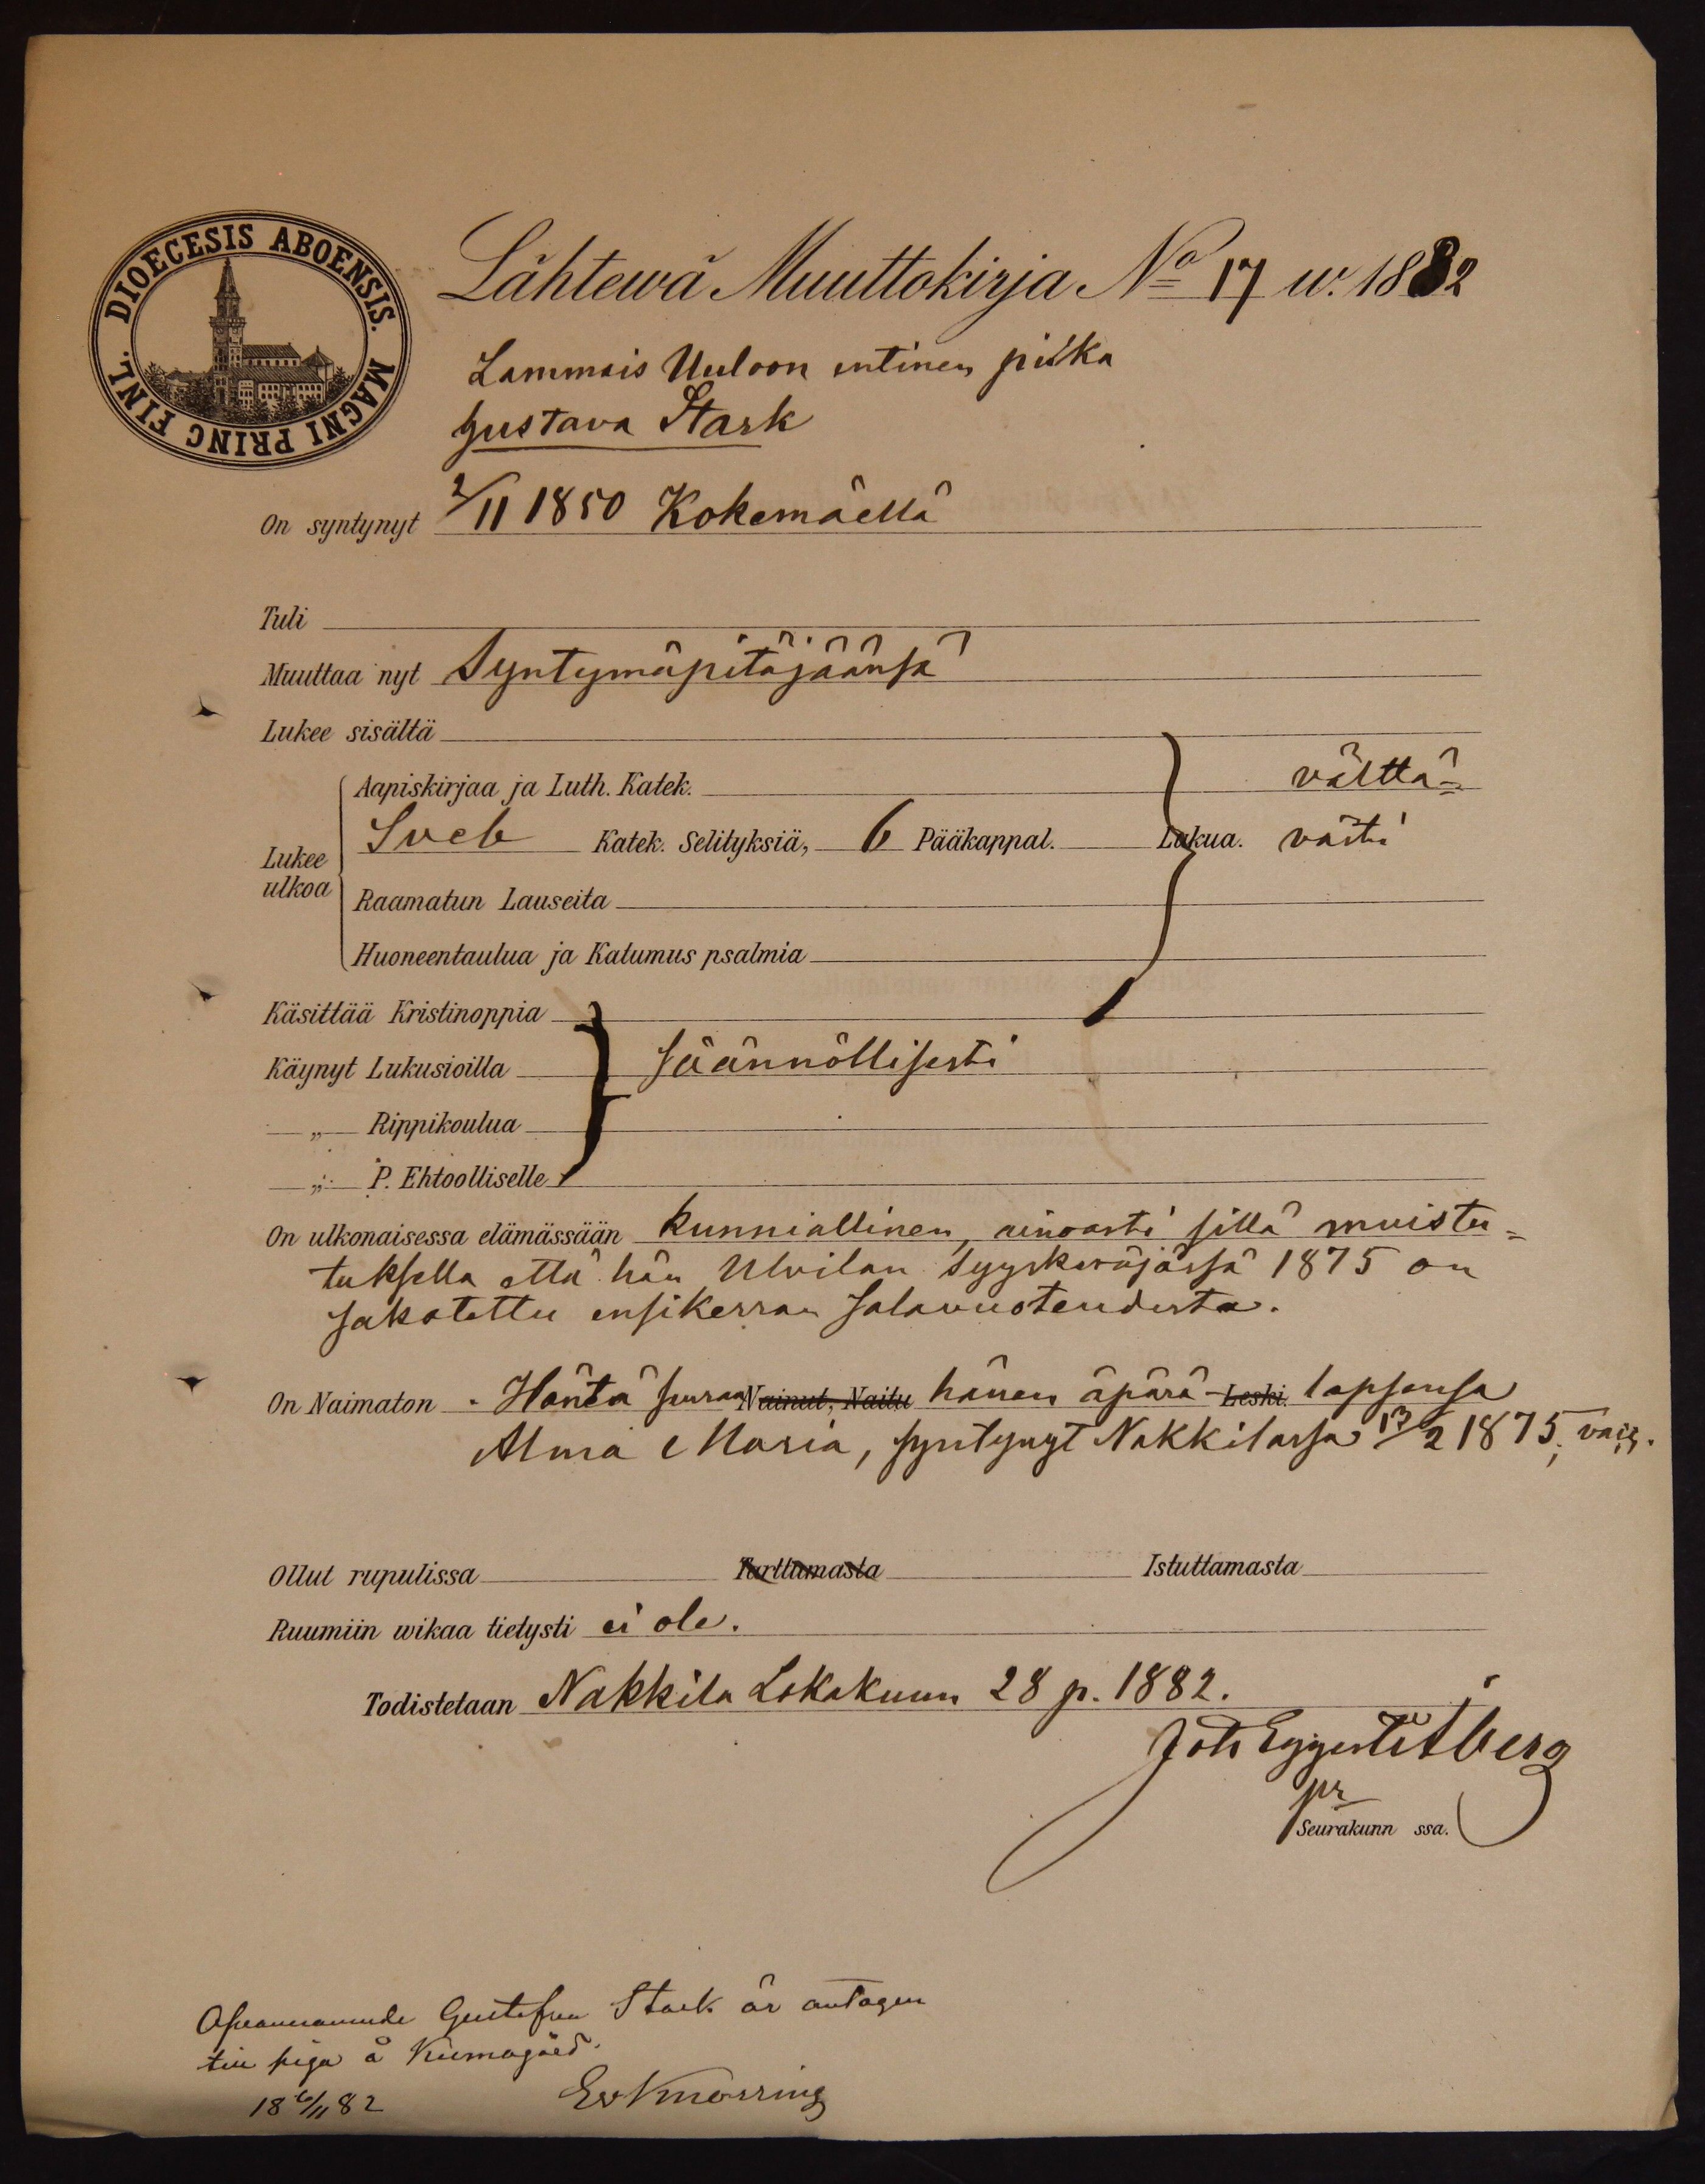 DIOECESIS ABOENSIS.
MAGNI PRINC FINL.
Lähtewä Muuttokirja No 17 w. 1882
Lammais Uuloon entinen piika
Gustava Stark
On syntynyt 2/11 1850 Kokemäellä
Tuli
Muuttaa nyt Syntymäpitäjäänsä
Lukee sisältä
Aapiskirjaa ja Luth. Katek. välttä=
Lukee ulkoa Sveb Katek. Selityksiä, 6 Pääkappal. Lukua. västi
Raamatun Lauseita
Huoneentaulua ja Katumus psalmia
Käsittää Kristinoppia
Käynyt Lukusioilla säännöllisesti
„ Rippikoulua
„ P. Ehtoolliselle
On ulkonaisessa elämässään kunniallinen, ainoasti sillä muistu=
tuksella että hän Ulvilan syyskäräjässä 1875 on
sakotettu ensikerran salavuoteudesta.
On Naimaton . Häntä seuraa Nainut, Naitu hänen äpärä- Leski. lapsensa
Alma Maria, syntynyt Nakkilassa 13/2 1875,
Ollut rupulissa Tarttumasta Istuttamasta
Ruumiin wikaa tietysti ei ole.
Todistetaan Nakkila Lokakuun 28 p. 1882.
Joh Eggert Åberg
pr
Seurakunn ssa.
Ofvannämnde Gustafva Stark är antagen
till piga å Kiumogård.
18 6/11 82 Knorring